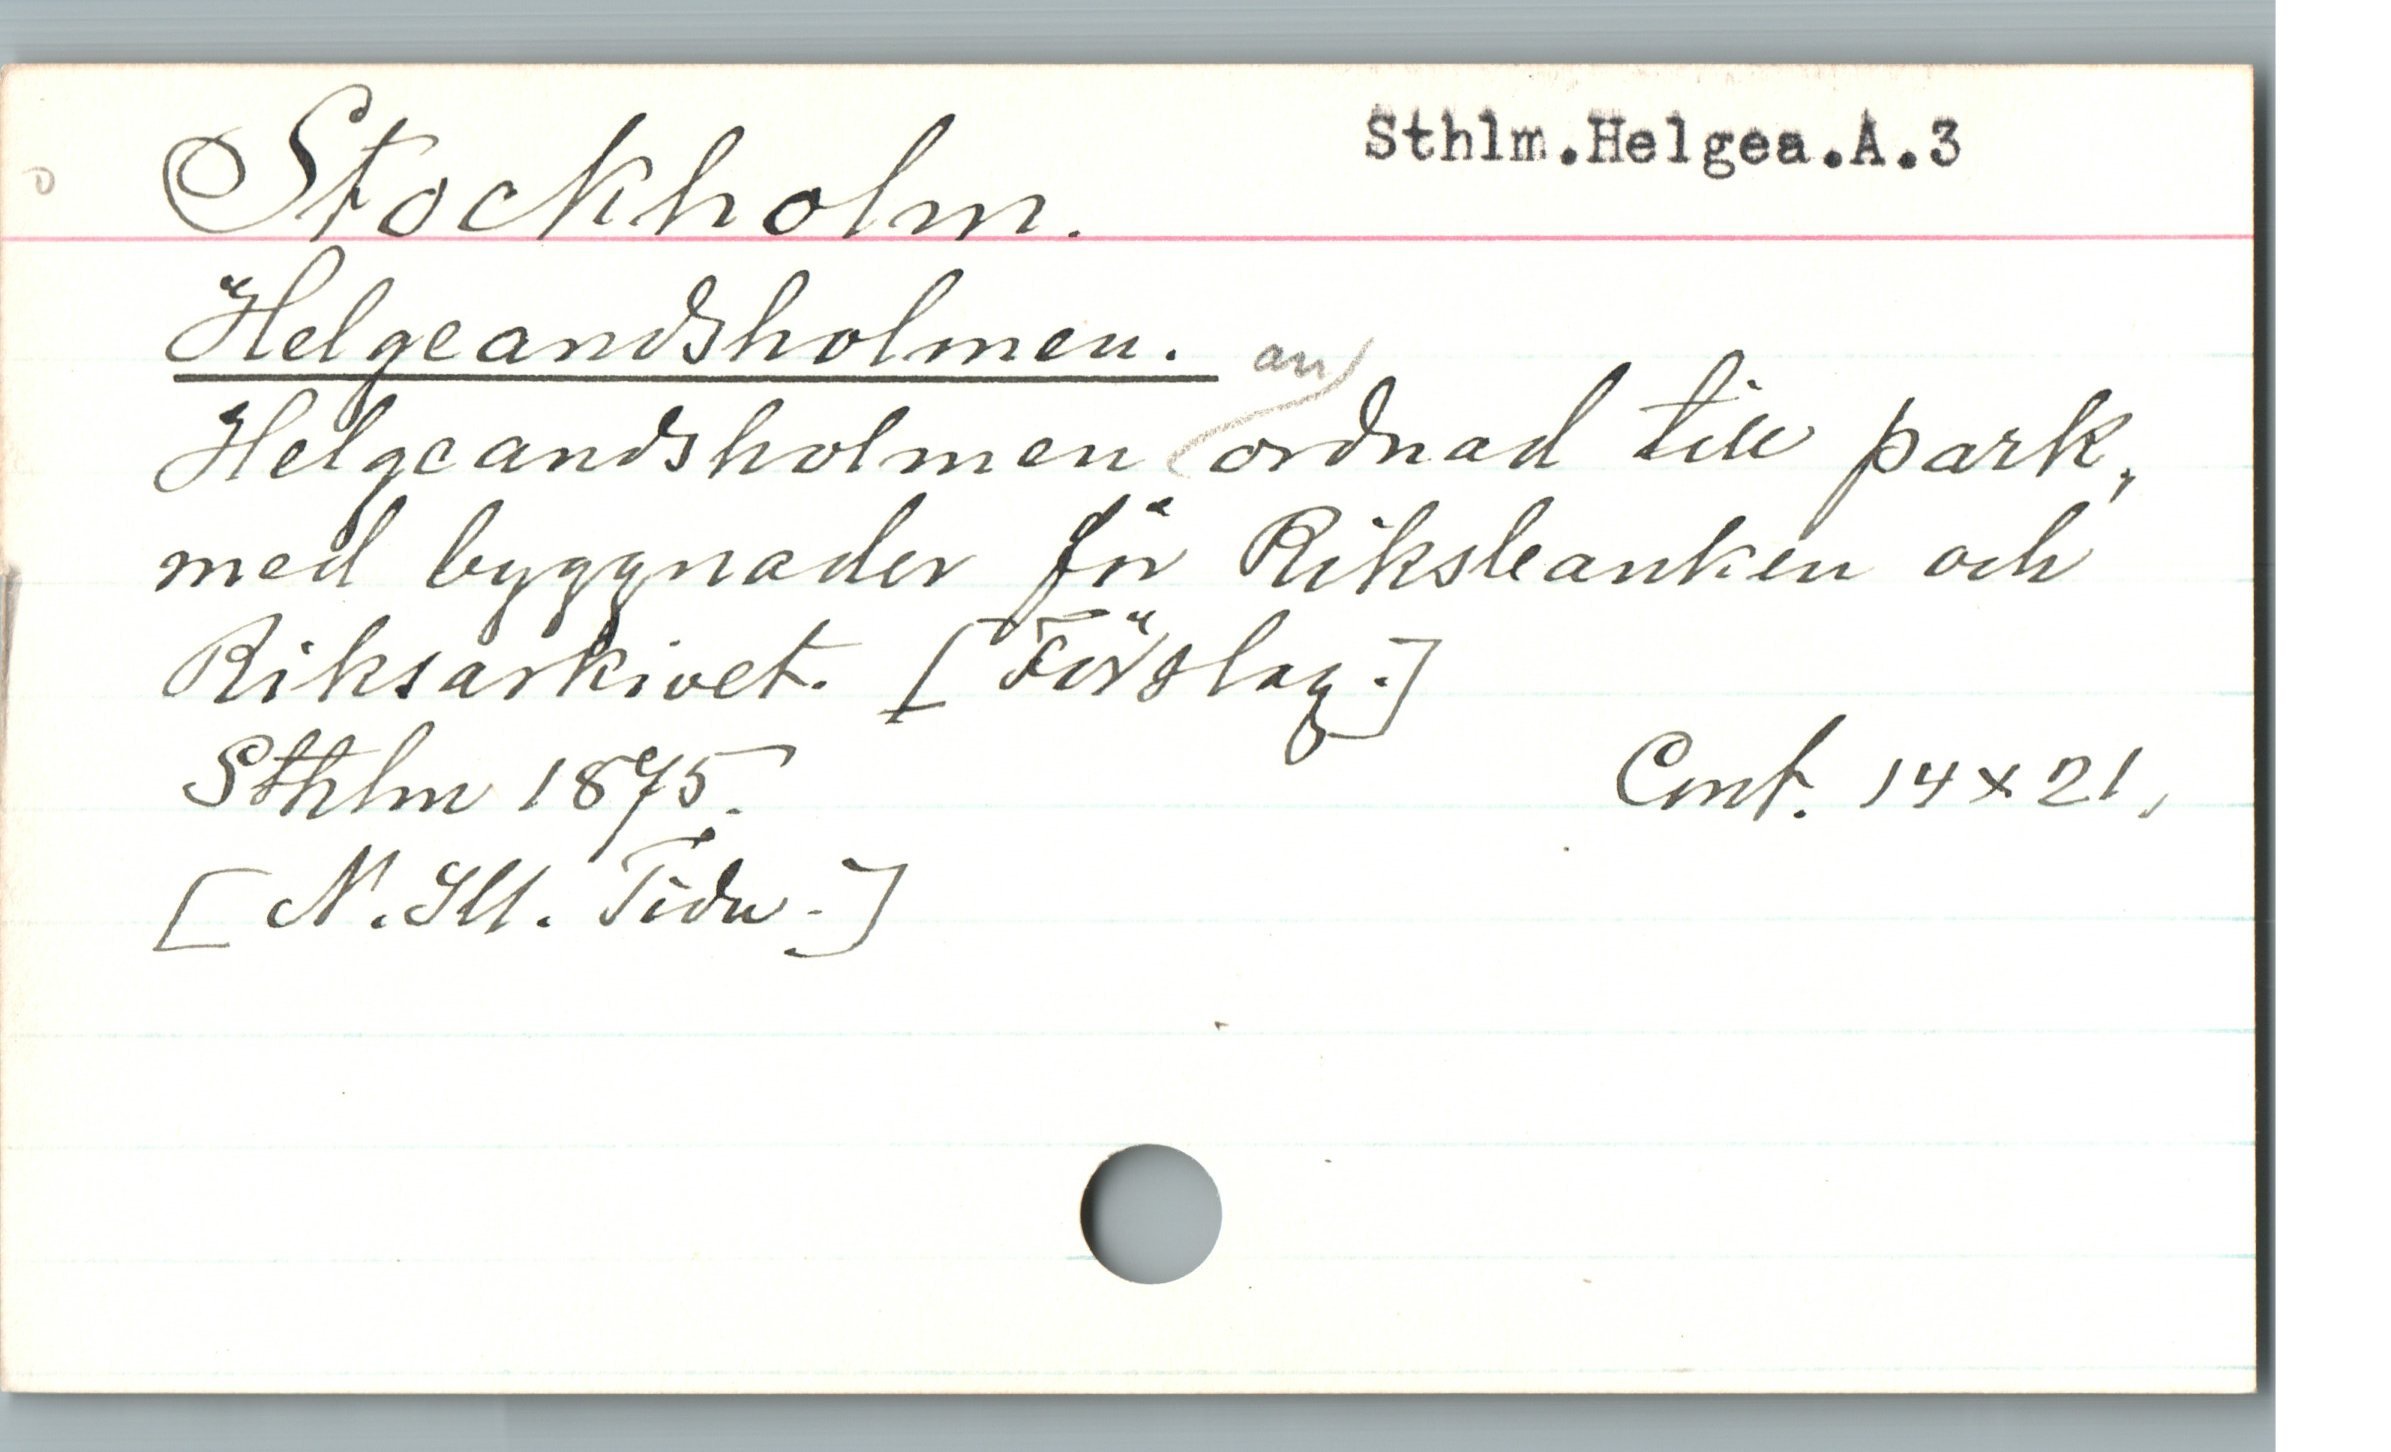 Stockholm. Sthlm.Helgea.A.3
Helgeandsholmen.
an
Helgeandsholmen ordnad till park,
med byggnader för Riksbanken och
Riksarkivet. [Förslag.]
Sthlm 1875. Cmt. 14 x 21,
[N. Ill. Tidn.]